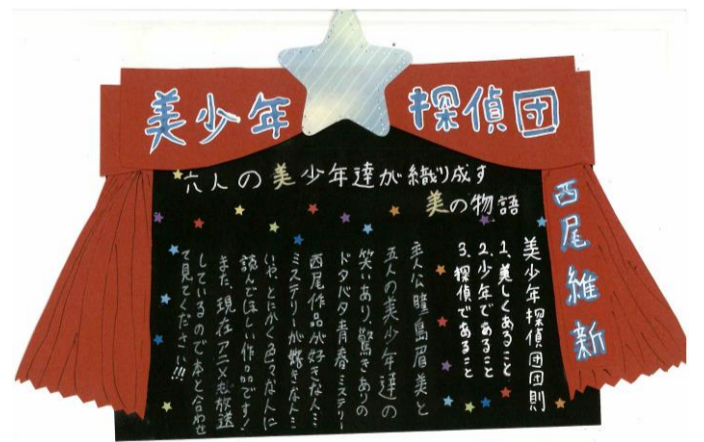 美少年探偵団
西尾維新
六人の美少年達が織り成す
美の物語
美少年探偵団団則
1.美しくあること
2.少年であること
3.探偵であること
主人公瞳島眉美と
五人の美少年達の
笑いあり、驚きありの
ドタバタ青春ミステリー
西尾作品が好きな人…
ミステリーが好きな人…
いや、とにかく色々な人に
読んでほしい作品です!
また、現在アニメも放送
しているので本と合わせ
て見てください!!!